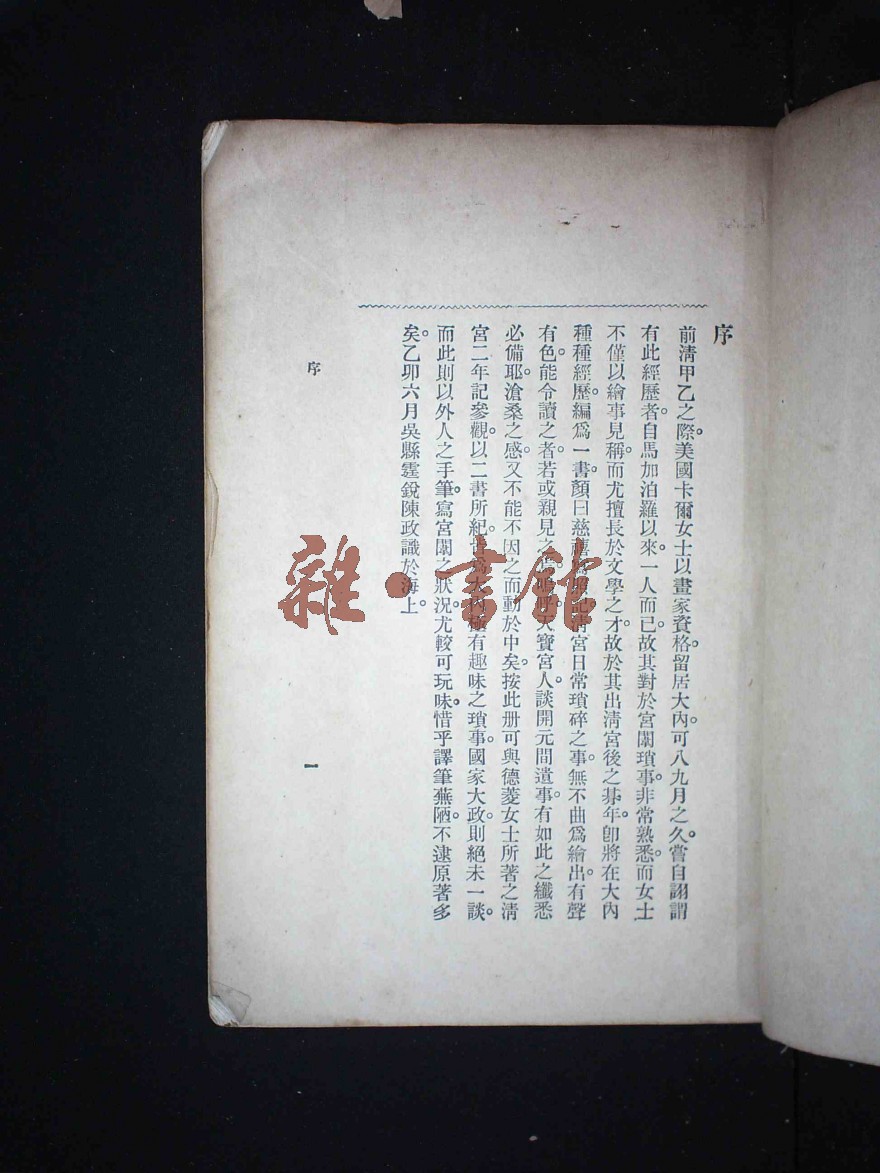 序
前清甲乙之際。美國卡爾女士以畫家資格。留居大內。可八九月之久。嘗自詡謂
有此經歷者。自馬加泊羅以來。一人而已。故其對於宮闈瑣事。非常熟悉。而女士
不僅以繪事見稱。而尤擅長於文學之才。故於其出清宮後之朞年。卽將在大內
種種經歷。編爲一書。顏曰慈禧寫照記。清宮日常瑣碎之事。無不曲爲繪出。有聲
有色。能令讀之者。若或親見之。天寶宮人。談開元間遺事。有如此之纖悉
必備耶。滄桑之感。又不能不因之而動於中矣。按此册可與德菱女士所著之清
宮二年記參觀。以二書所紀。皆爲大內極有趣味之瑣事。國家大政。則絕未一談。
而此則以外人之手筆。寫宮闈之狀况。尤較可玩味。惜乎譯筆蕪陋。不逮原著多
矣。乙卯六月吳縣霆銳陳政識於海上。
序
一
雜·書館